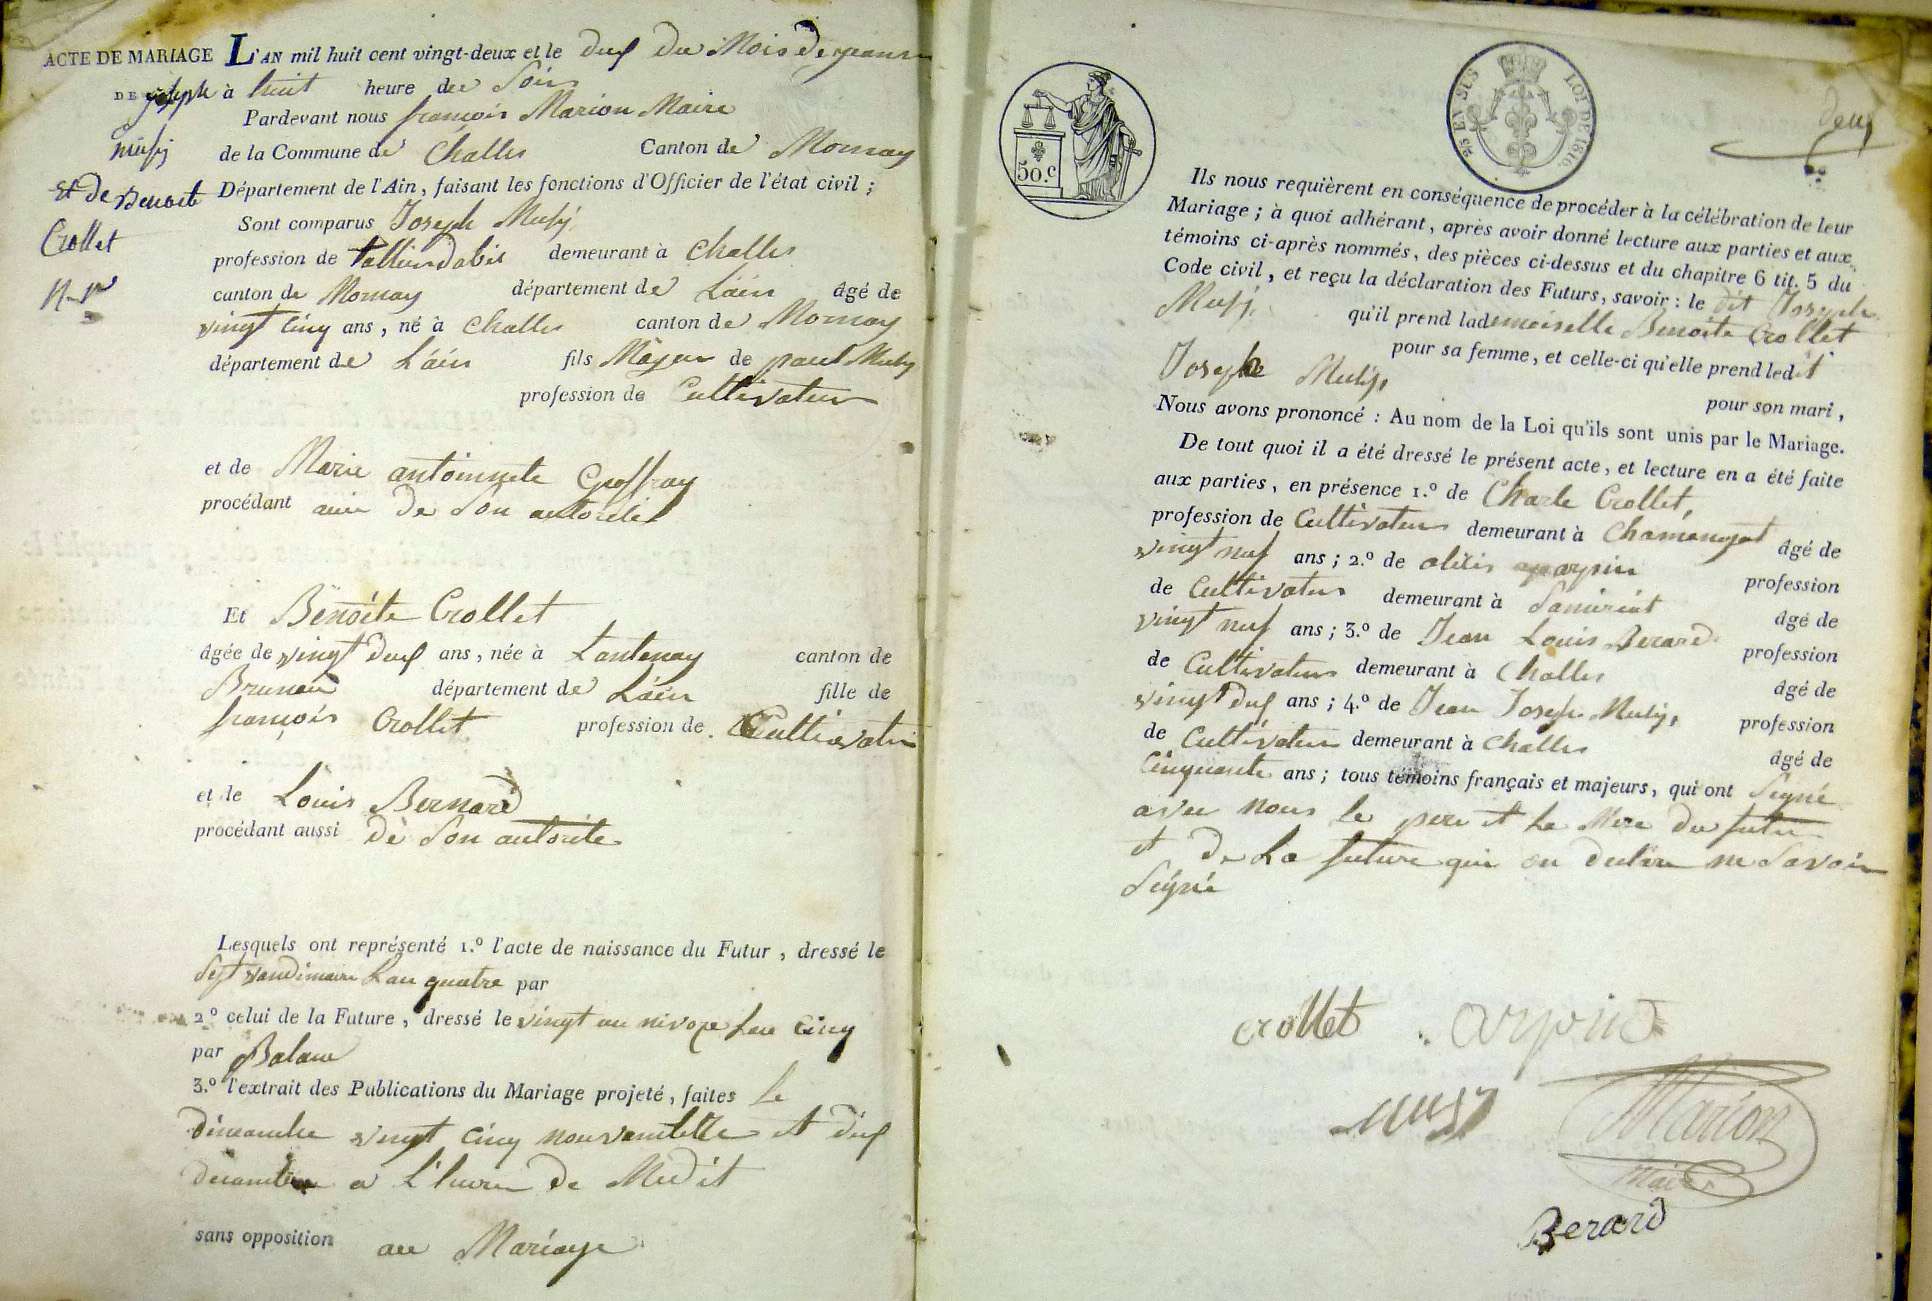 ACTE DE MARIAGE L'AN mil huit cent vingt-deux et le deux du Mois de jeanvie
DE joseph à huit heure du Soir
Pardevant nous françois Marion Maire
musy de la Commune de Challes Canton de Mornay
et de Benoite Département de l'Ain, faisant les fonctions d'Officier de l'état civil ;
Crollet Sont comparus Joseph Musy
profession de demeurant à Challes
canton de Mornay département de Láin âgé de
vingt cinq ans, né à Challes canton de Mornay
département de Láin fils Majeur de paul Musy
profession de Cultivateur
et de Marie antoinnete Goffray
procédant de Son autorité
Et Benoite Crollet
âgée de vingt deux ans, née à Lantenay canton de
département de Láin fille de
françois Crollet profession de Cultivateur
et de Louis Bernard
procédant aussi de Son autorite
Lesquels ont représenté 1.º l'acte de naissance du Futur, dressé le
Sept vandimaire Lan quatre par
2.º celui de la Future, dressé le vingt un nivoze Lan Cinq
par
3.º l'extrait des Publications du Mariage projeté, faites Le
dimanche vingt cinq et deux
a L'heure de Midit
sans opposition au Mariage
50.c
25 EN SUS LOI DE 1816
deux
Ils nous requièrent en conséquence de procéder à la célébration de leur
Mariage ; à quoi adhérant, après avoir donné lecture aux parties et aux
témoins ci-après nommés, des pièces ci-dessus et du chapitre 6 tit. 5 du
Code civil, et reçu la déclaration des Futurs, savoir : le dit Joseph
Musy. qu'il prend lademoiselle Benoite Crollet
pour sa femme, et celle-ci qu'elle prend ledit
Joseph Musy, pour son mari,
Nous avons prononcé : Au nom de la Loi qu'ils sont unis par le Mariage.
De tout quoi il a été dressé le présent acte, et lecture en a été faite
aux parties, en présence 1.º de Charle Crollet,
profession de Cultivateur demeurant à âgé de
vingt neuf ans ; 2.º de alexis arpin profession
de Cultivateur demeurant à Samiriat âgé de
vingt neuf ans ; 3.º de Jean Louis Berard profession
de Cultivateur demeurant à Challes âgé de
vingt deux ans ; 4.º de Jean Joseph Musy, profession
de Cultivateur demeurant à Challes âgé de
Cinquante ans ; tous témoins français et majeurs, qui ont Signé
avec nous le pere et La Mere du futur
et de La future qui on declare ne Savoir
Signé
crollet arpin
musy Marion
Maire
Berard